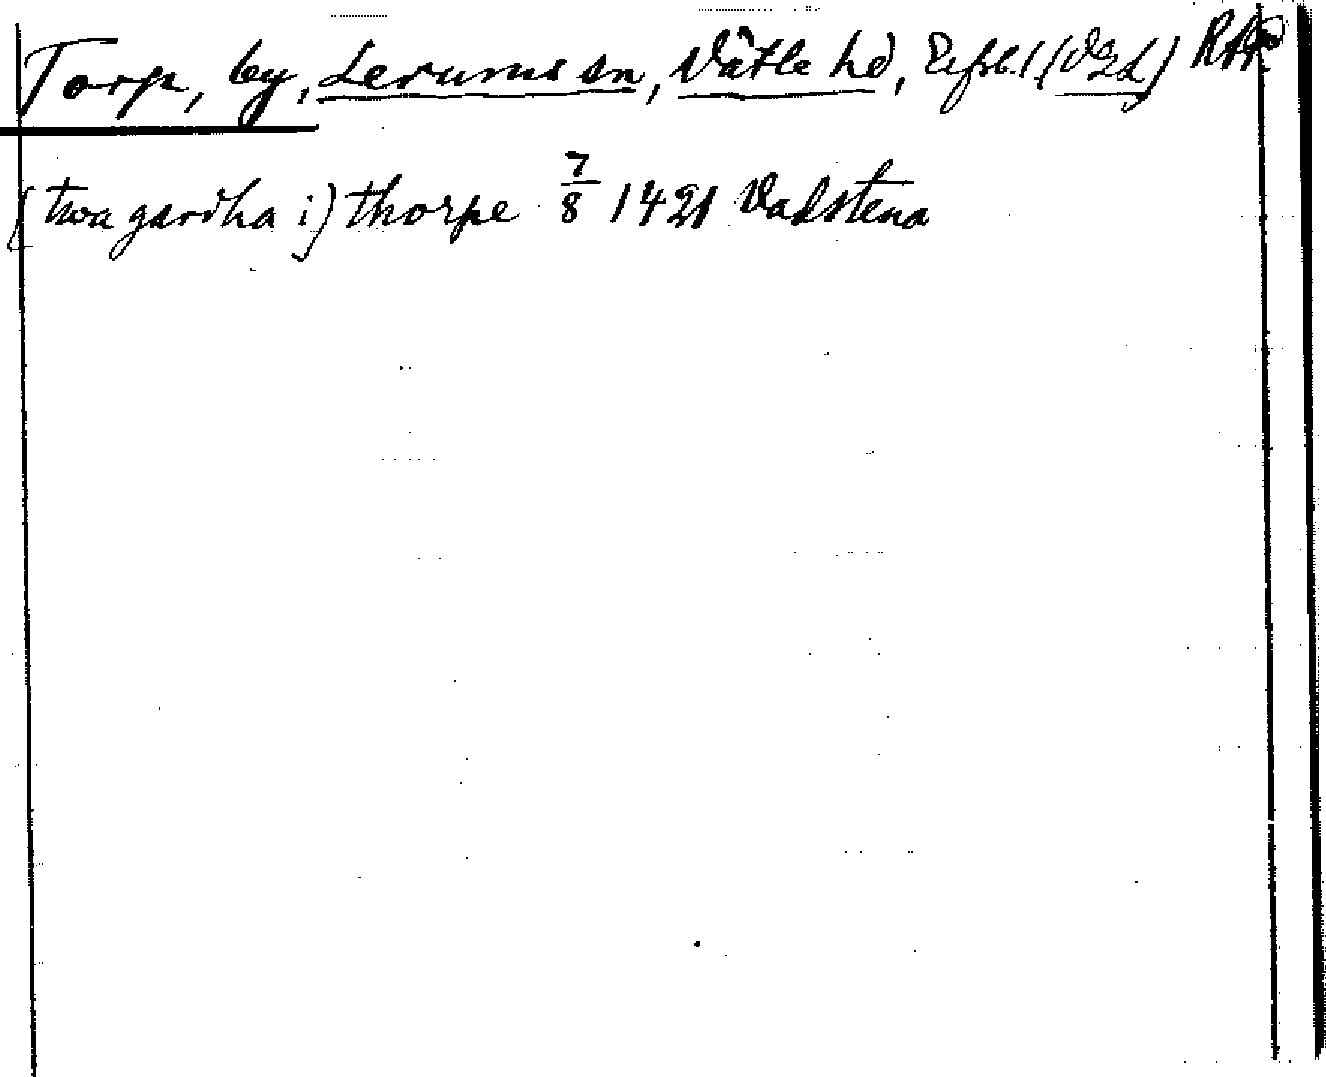 Torp, by, Lerums sn, Vätle hd, Elfsb. l (VgL) RAp
(twa gardha i) thorpe 7/8 1421 Vadstena